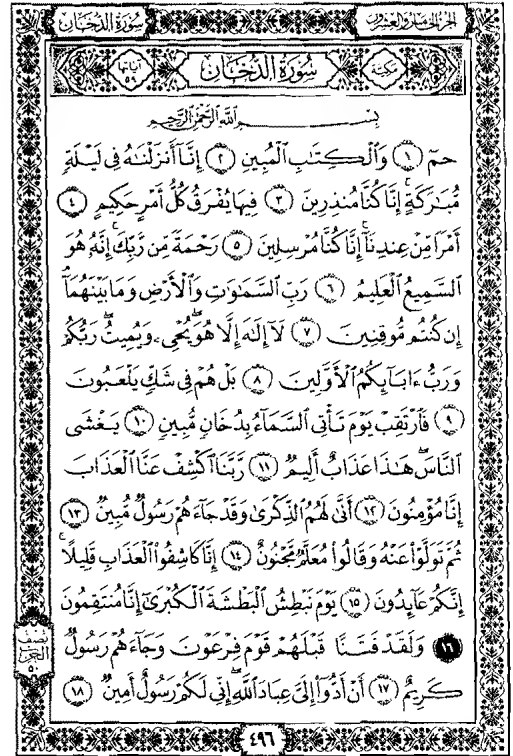 سورة الدخان
الجزء الخامس والعشرون
آياتها ٥٩
سورة الدخان
مكية
بسم الله الرحمن الرحيم
حمٓ ١ وَٱلْكِتَٰبِ ٱلْمُبِينِ ٢ إِنَّآ أَنزَلْنَٰهُ فِى لَيْلَةٍ
مُّبَٰرَكَةٍ ۚ إِنَّا كُنَّا مُنذِرِينَ ٣ فِيهَا يُفْرَقُ كُلُّ أَمْرٍ حَكِيمٍ ٤
أَمْرًا مِّنْ عِندِنَآ ۚ إِنَّا كُنَّا مُرْسِلِينَ ٥ رَحْمَةً مِّن رَّبِّكَ ۚ إِنَّهُۥ هُوَ
ٱلسَّمِيعُ ٱلْعَلِيمُ ٦ رَبِّ ٱلسَّمَٰوَٰتِ وَٱلْأَرْضِ وَمَا بَيْنَهُمَآ ۖ
إِن كُنتُم مُّوقِنِينَ ٧ لَآ إِلَٰهَ إِلَّا هُوَ يُحْىِۦ وَيُمِيتُ ۖ رَبُّكُمْ
وَرَبُّ ءَابَآئِكُمُ ٱلْأَوَّلِينَ ٨ بَلْ هُمْ فِى شَكٍّ يَلْعَبُونَ
٩ فَٱرْتَقِبْ يَوْمَ تَأْتِى ٱلسَّمَآءُ بِدُخَانٍ مُّبِينٍ ١٠ يَغْشَى
ٱلنَّاسَ ۖ هَٰذَا عَذَابٌ أَلِيمٌ ١١ رَّبَّنَا ٱكْشِفْ عَنَّا ٱلْعَذَابَ
إِنَّا مُؤْمِنُونَ ١٢ أَنَّىٰ لَهُمُ ٱلذِّكْرَىٰ وَقَدْ جَآءَهُمْ رَسُولٌ مُّبِينٌ ١٣
ثُمَّ تَوَلَّوْا۟ عَنْهُ وَقَالُوا۟ مُعَلَّمٌ مَّجْنُونٌ ١٤ إِنَّا كَاشِفُوا۟ ٱلْعَذَابِ قَلِيلًا ۚ
إِنَّكُمْ عَآئِدُونَ ١٥ يَوْمَ نَبْطِشُ ٱلْبَطْشَةَ ٱلْكُبْرَىٰٓ إِنَّا مُنتَقِمُونَ
١٦ وَلَقَدْ فَتَنَّا قَبْلَهُمْ قَوْمَ فِرْعَوْنَ وَجَآءَهُمْ رَسُولٌ
كَرِيمٌ ١٧ أَنْ أَدُّوٓا۟ إِلَىَّ عِبَادَ ٱللَّهِ ۖ إِنِّى لَكُمْ رَسُولٌ أَمِينٌ ١٨
نصف
الحزب
٥٠
٤٩٦